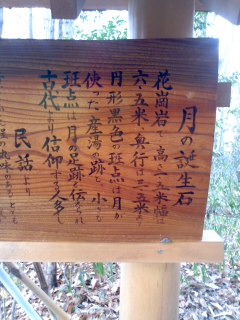 月の誕生石
花崗岩で高さ三・五米幅は
六・五米、奥行は三・五米で
円形黒色の斑点は月が
使った産湯の跡で、小さな
斑点は月の足跡と伝られ
古代より信仰する人多し
民話より